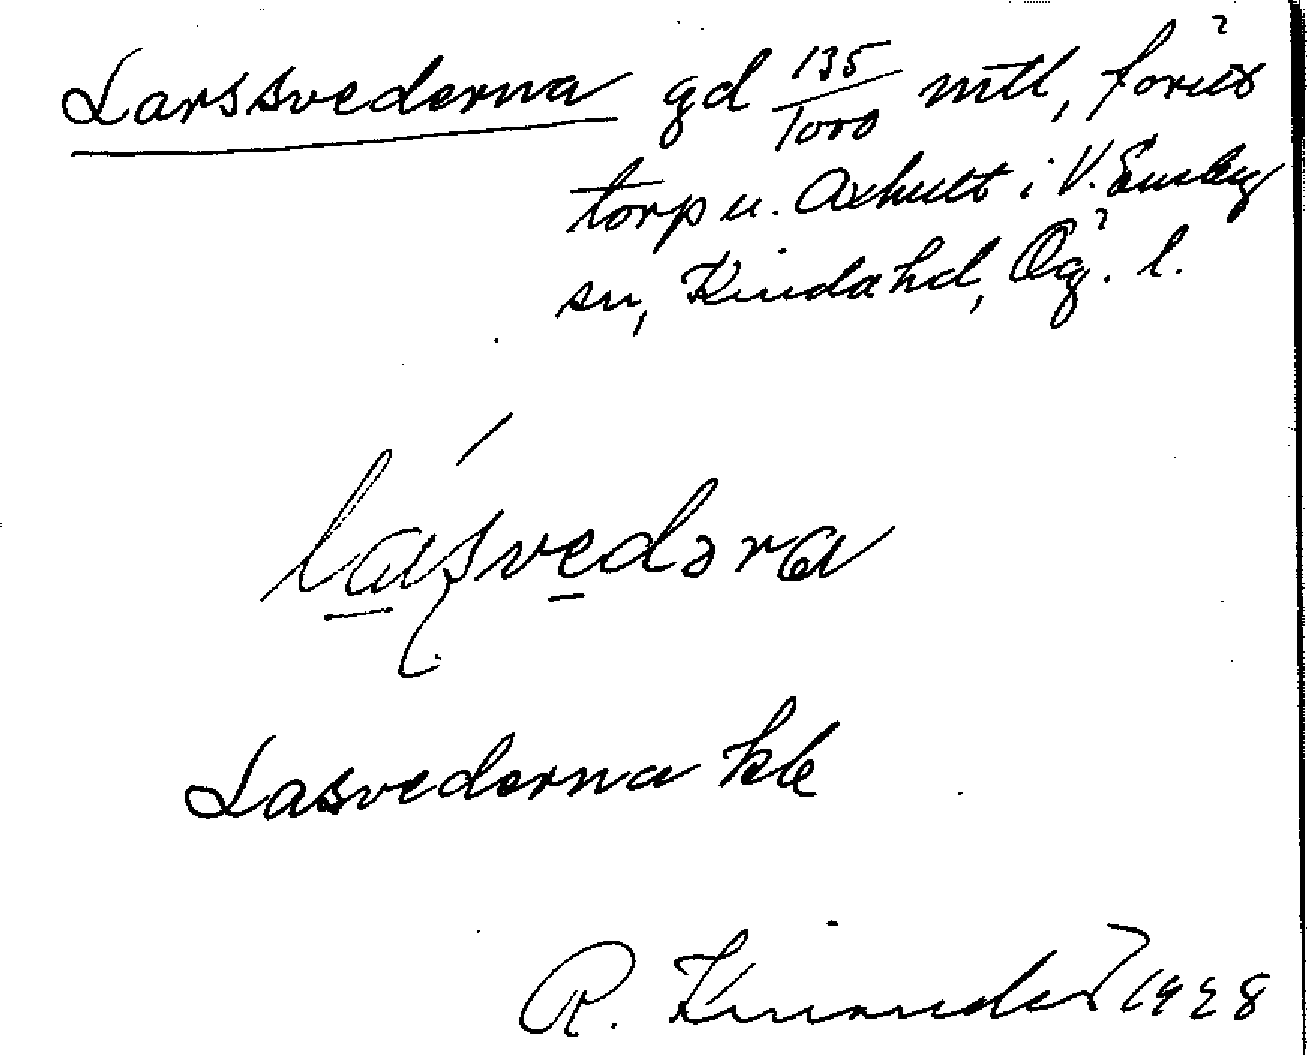 Larssvederna gd 135/1000 mtl, förut
torp u. Axhult i V. Eneby
sn, Kinda hd, Ög. l.
lásvedəra
Lasvederna kle
R. 1928